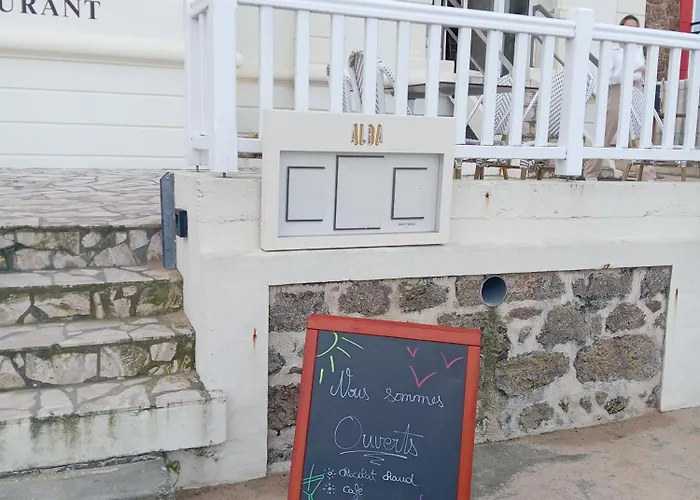 URANT
ALBA
Nous sommes
Ouverts
Chocolat chaud
Café